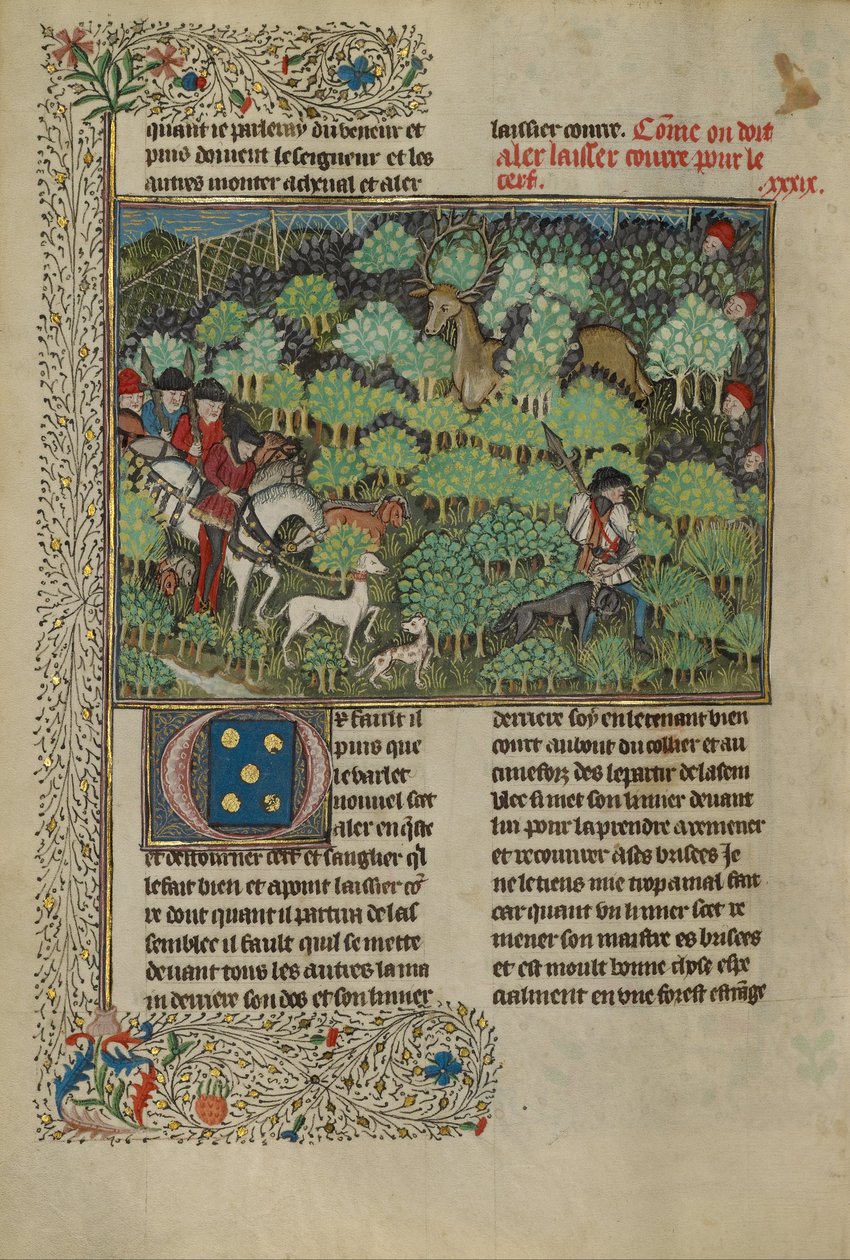 quant ie parleray du veneur et
puis doiuent le seigneur et les
autres monter a cheual et aler
laissier courre. Cōme on doit
aler laisser courre pour le
cerf. .xxxix.
Or fault il
puis que
le varlet
nouuel scet
aler en q̄ste
et destourner cerf et sanglier q̄l
le fait bien et a point laissier co᷑
re dont quant il partira de las
semblee il fault quil se mette
deuant tous les autres la ma
in derriere son dos et son limier
derriere soy en le tenant bien
court au bout du collier et au
cunefoiz des le partir de lasem
blee si met son limier deuant
lui pour la prendre a remener
et recouurer a ses brisees Je
ne le tiens mie trop a mal fait
car quant vn limier scet re
mener son maistre es brisees
et est moult bonne chose espe
cialment en vne forest estrāge